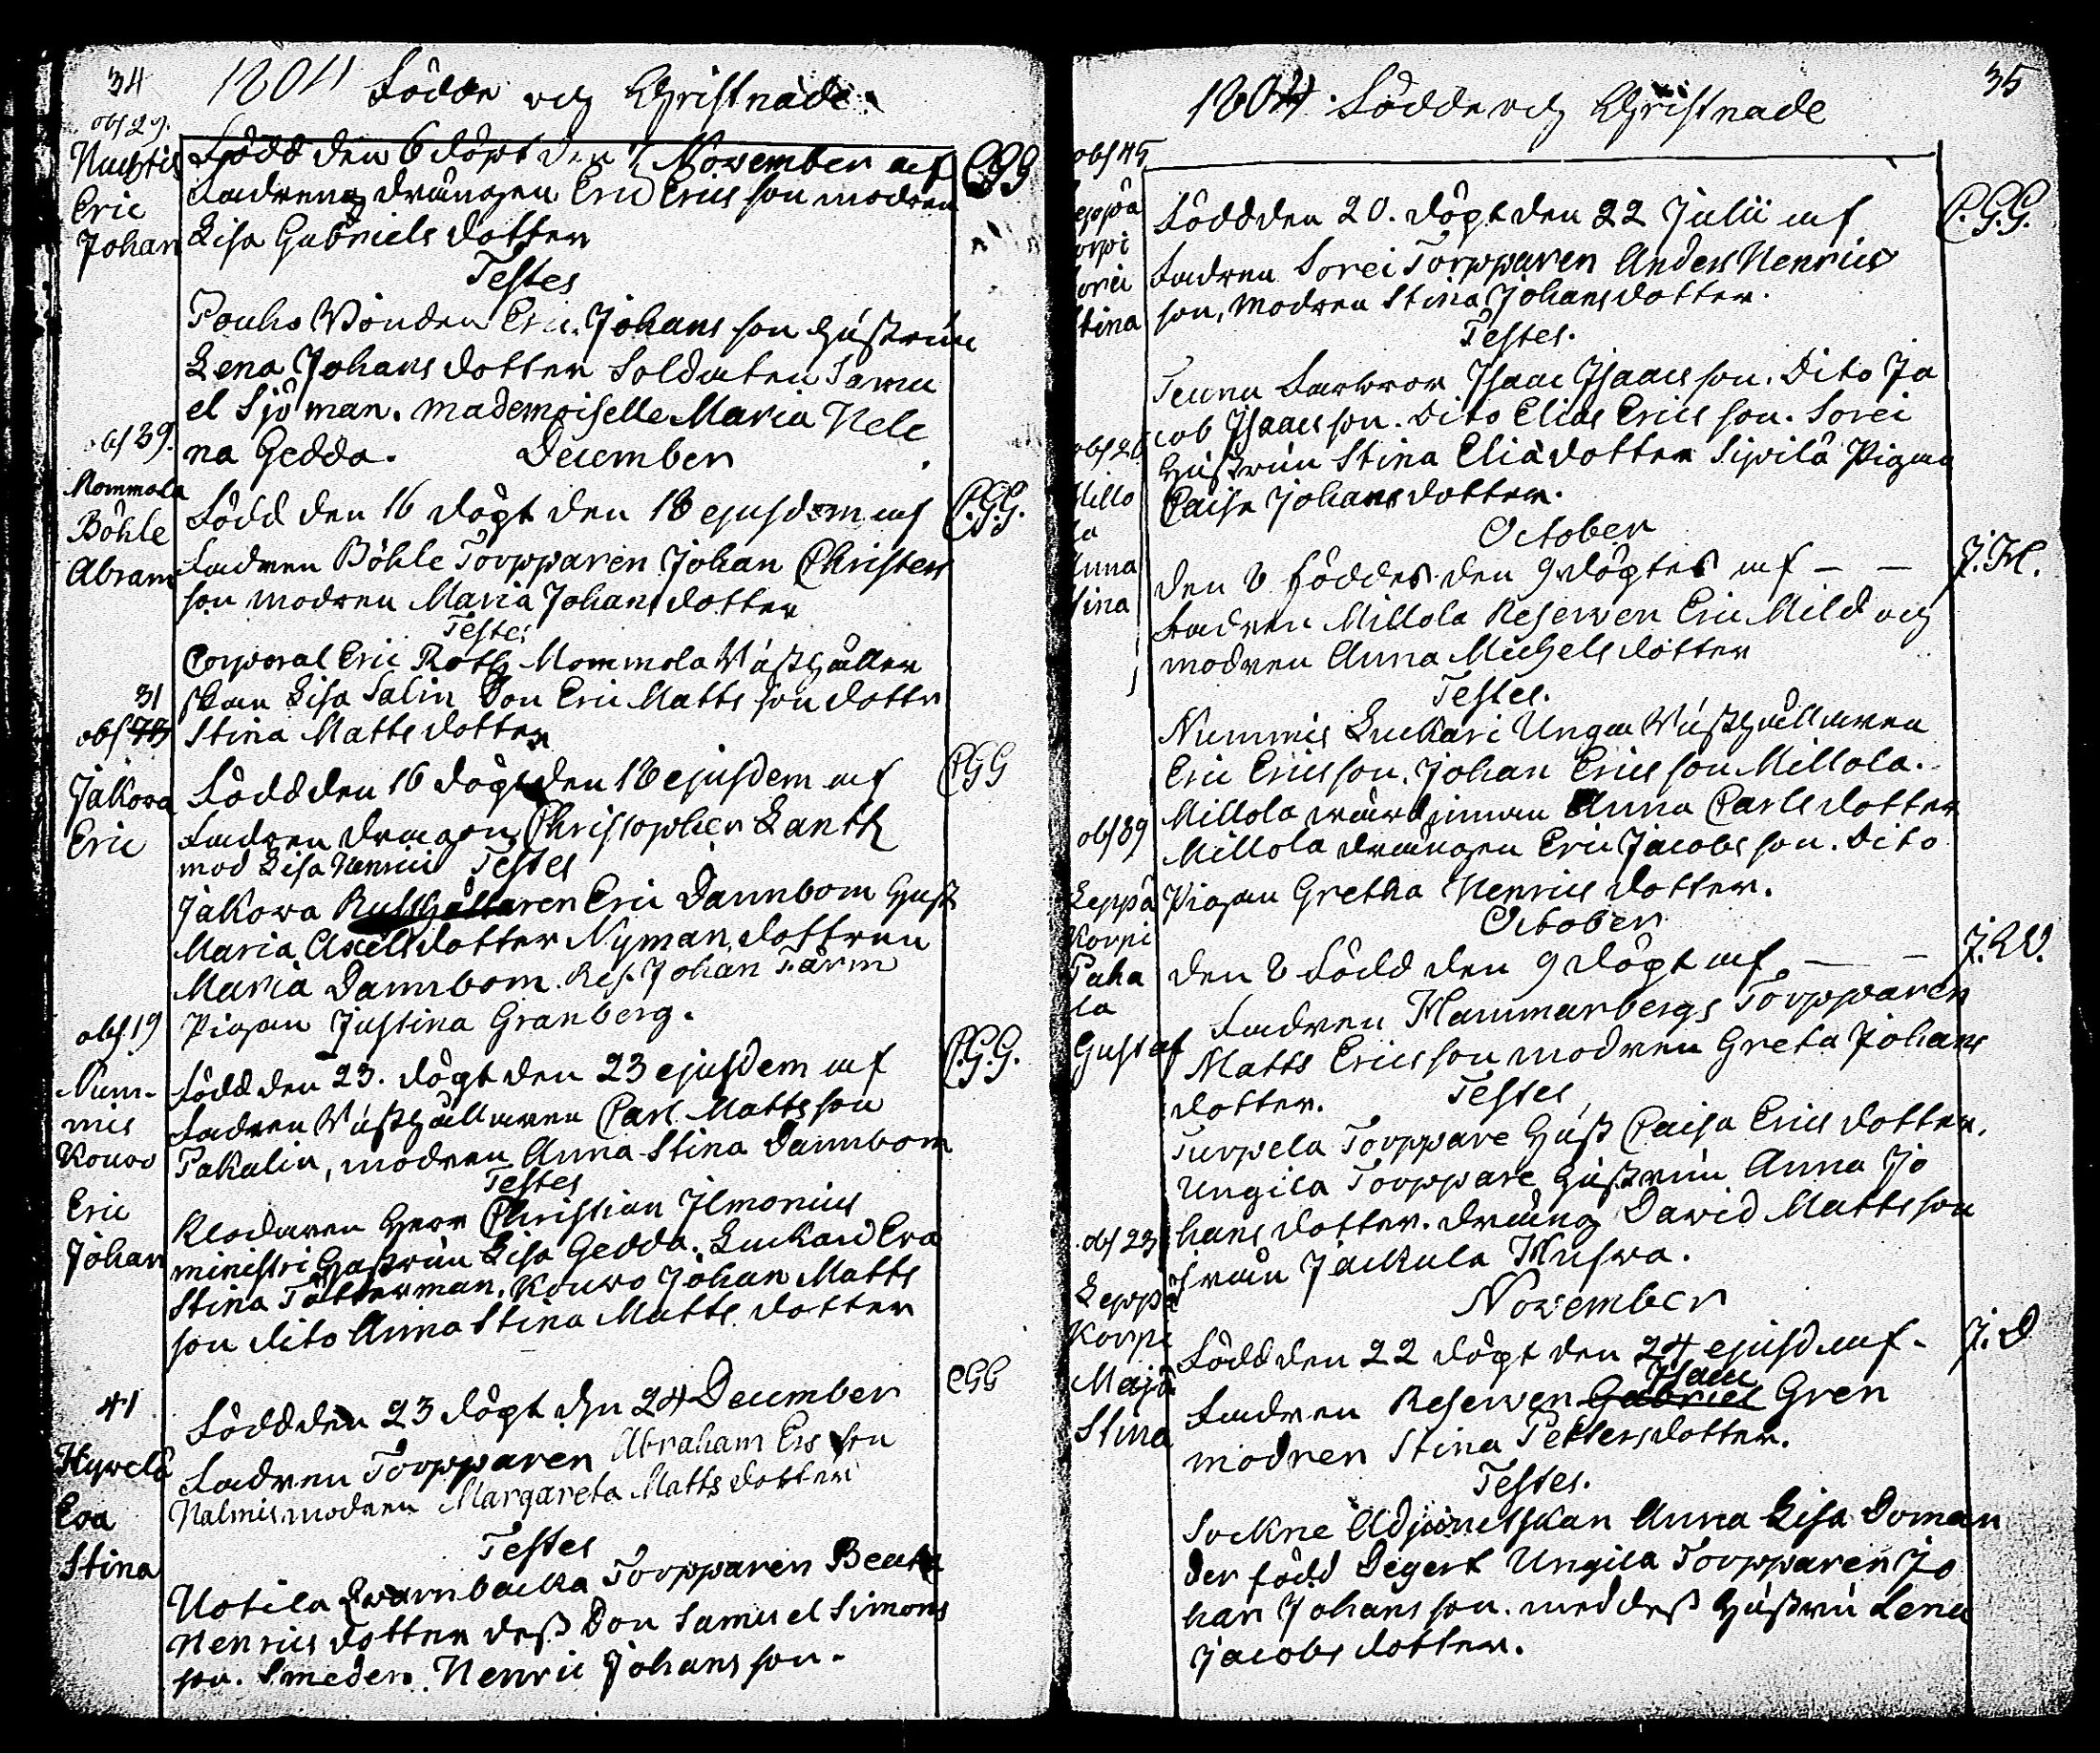 34
1804 Födde och Christnade
obs 29.
Nuutis
Eric
Johan
Född den 6 döpt den 7 November af
Fadren drängen Eric Ericsson modren
Lisa Gabrielsdotter
Testes
Pouho Bonden Eric Johansson hustrun
Lena Johansdotter Soldaten Samu
el Sjöman. mademoiselle Maria Hele
na Gedda. December
CGG
obs 39.
Mommola
Böhle
Abram
Född den 16 döpt den 18 ejusdem af
Fadren Böhle Torpparen Johan Christers
son modren Maria Johansdotter
Testes
Corporal Eric Roth Mommola Rusthåller
skan Lisa Salin Son Eric Matts son dottr
Stina Mattsdotter
C.G.G.
31
obs
Jakova
Eric
Född den 16 döpt den 18 ejusdem af
Fadren dragon Christopher Lanth
mod Lisa Henrics Testes
Jakova Rusthållaren Eric Dannbom Hust
Maria Axelsdotter Nyman, dottren
Maria Dannbom. Res. Johan Färm
Pigan Justina Granberg.
CGG
obs. 19
Num-
mis
Kouvo
Eric
Johan
Född den 23. döpt den 23 ejusdem af
Fadren Rusthållaren Carl Mattsson
Pakalin, modren Anna Stina Dannbom
Testes
Klockaren Herr Christian Ilmonius
ministri Hustrun Lisa Gedda. Luckari Eva
Stina Tätterman. Kouvo Johan Matts
son dito Anna Stina Mattsdotter
C.G.G.
41
Hyvelä
Eva
Stina
Född den 23 döpt den 24 December
Fadren Torpparen Abraham Ers son
Halmis modren Margareta Mattsdotter
Testes
Uotila Qvarnbacka Torpparen Beata
Henricsdotter dess Son Samuel Simons
son. Smeden Henric Johansson.
CGG
35
1804. Födde och Christnade
obs 45
eppä
orpi
orei
Stina
Född den 20. döpt den 22 Julii af
Fadren Sorei Torpparen Anders Henrics
son, Modren Stina Johansdotter.
Testes.
Isaac Isaacsson. Dito Ja
cob Isaacsson. Dito Elias Ericsson. Sorei
Hustrun Stina Eliædotter Sipilä Pigan
Caisa Johansdotter.
C.G.G.
October
obs 26
Millo
la
Anna
Stina
den 8 föddes den 9 döptes af — —
Fadren Millola Reserven Eric Mild och
modren Anna Michelsdotter
Testes.
Nummis Luckari Unga Rusthållaren
Eric Ericsson. Johan Ericsson Millola.
Millola värdinnan Anna Carlsdotter
Millola drängen Eric Jacobsson. Dito
Pigan Gretha Henricsdotter.
October
obs 89
Leppä
Korpi
Paha
la
Gustaf
den 8 född den 9 döpt af. — —
Fadren Hammarbergs Torpparen
Matts Ericsson modren Greta Johans
dotter. Testes
Turpela Torppare Hust Caisa Ericsdotter.
Ungila Torppare Hustrun Anna Jo
hansdotter. dräng David Mattsson
från Jackula
November
obs 23
Leppä
Korpi
Maja
Stina
Född den 22 döpt den 24 ejusd af.
Isaac
Fadren Reserven Gabriel Gren
modren Stina Pettersdotter.
Testes.
J. D
Sockne Adjunctskan Anna Lisa Doman
der född Degert Ungila Torpparen Jo
han Johansson. med dess Hustru Lena
Jacobsdotter.